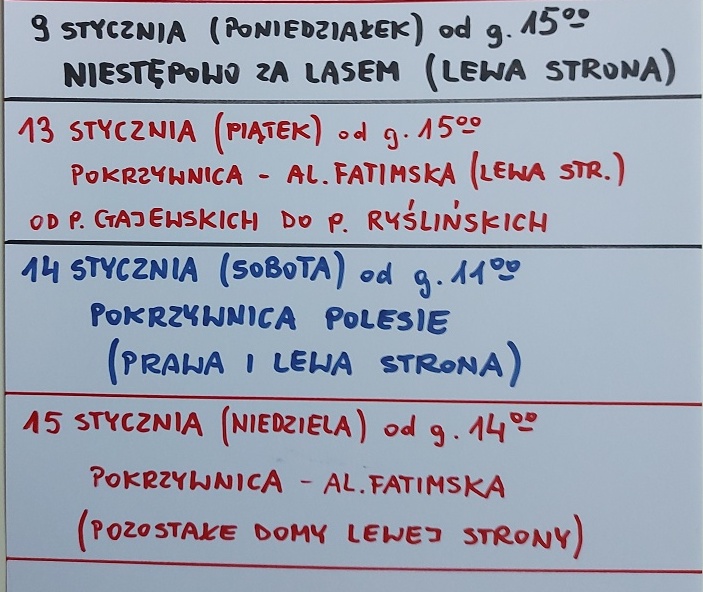 9 STYCZNIA (PONIEDZIAŁEK) od g. 15⁰⁰
NIESTĘPOWO ZA LASEM (LEWA STRONA)
13 STYCZNIA (PIĄTEK) od g. 15⁰⁰
POKRZYWNICA - AL. FATIMSKA (LEWA STR.)
OD P. GAJEWSKICH DO P. RYŚLIŃSKICH
14 STYCZNIA (SOBOTA) od g. 11⁰⁰
POKRZYWNICA POLESIE
(PRAWA I LEWA STRONA)
15 STYCZNIA (NIEDZIELA) od g. 14⁰⁰
POKRZYWNICA - AL. FATIMSKA
(POZOSTAŁE DOMY LEWEJ STRONY)